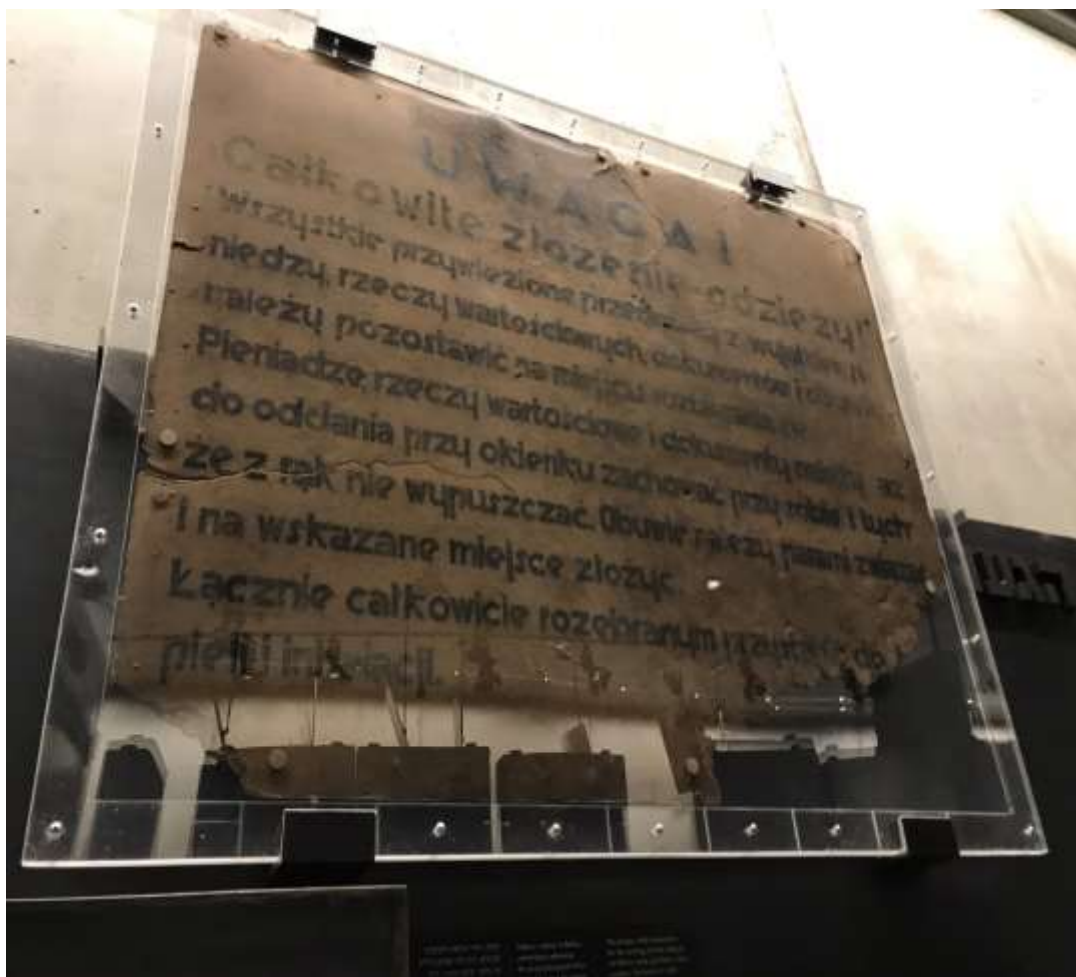 UWAGA!
Całkowite złożenie odzieży!
Wszystkie przywiezione przedmioty z wyjątkiem pie-
niędzy, rzeczy wartościowych, dokumentów i obuwia
należy pozostawić na miejscu rozbierania się.
Pieniądze, rzeczy wartościowe i dokumenty należy aż
do oddania przy okienku zachować przy sobie i tych
że z rąk nie wypuszczać. Obuwie należy parami związać
i na wskazane miejsce złożyć.
Łącznie całkowicie rozebranym do